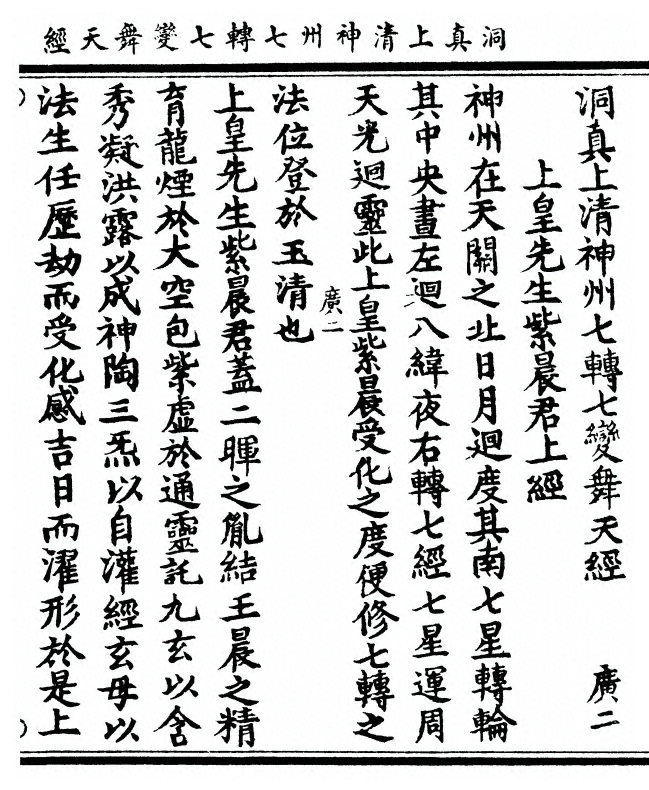 洞真上清神州七轉七變舞天經
洞真上清神州七轉七變舞天經　廣二
上皇先生紫晨君上經
神州在天關之北日月迴度其南七星轉輪
其中央晝左迴八緯夜右轉七經七星運周
天光迴靈此上皇紫晨受化之度便修七轉之
法位登於玉清也
廣二
上皇先生紫晨君蓋二暉之胤結王晨之精
育龍煙於大空包紫虛於通靈託九玄以含
秀凝洪露以成神陶三炁以自灌經玄母以
法生任歷劫而受化感吉日而濯形於是上